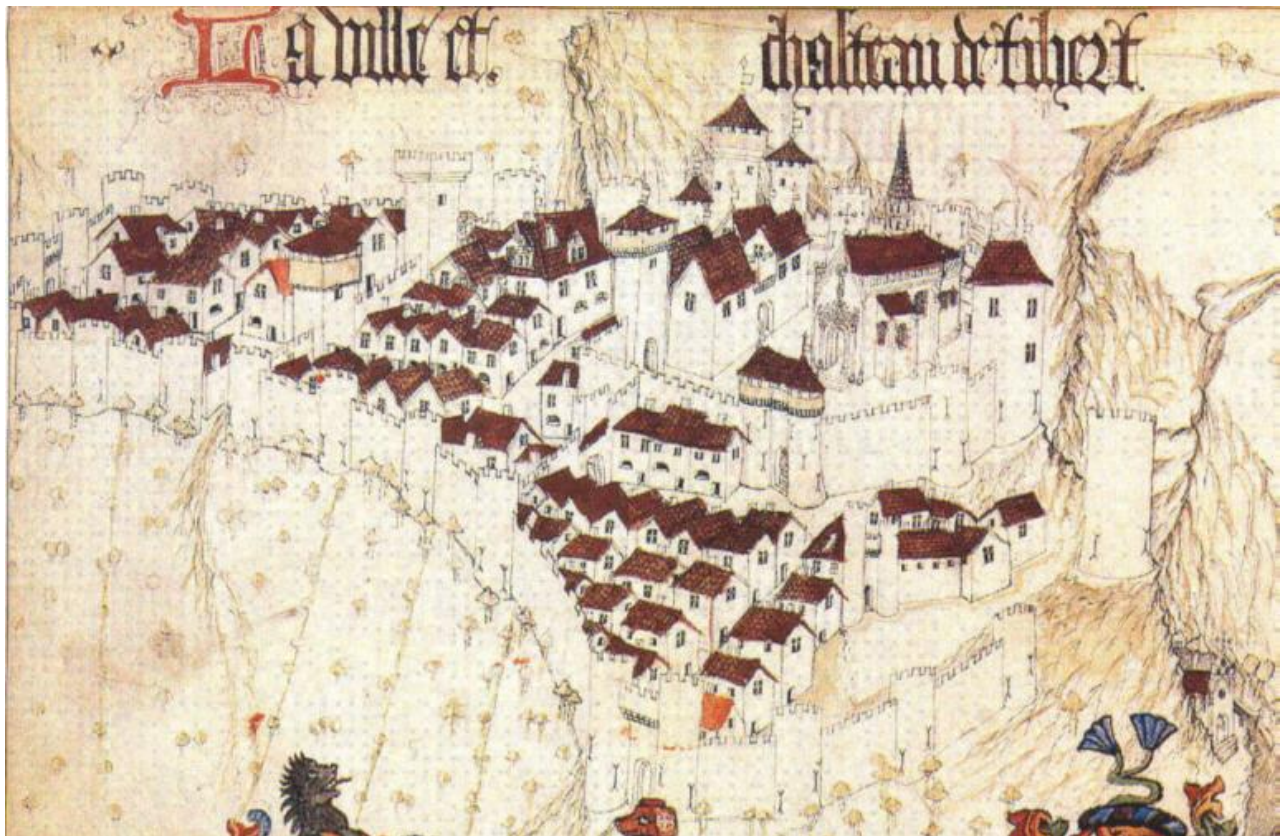 La ville et. chasteau de tihert